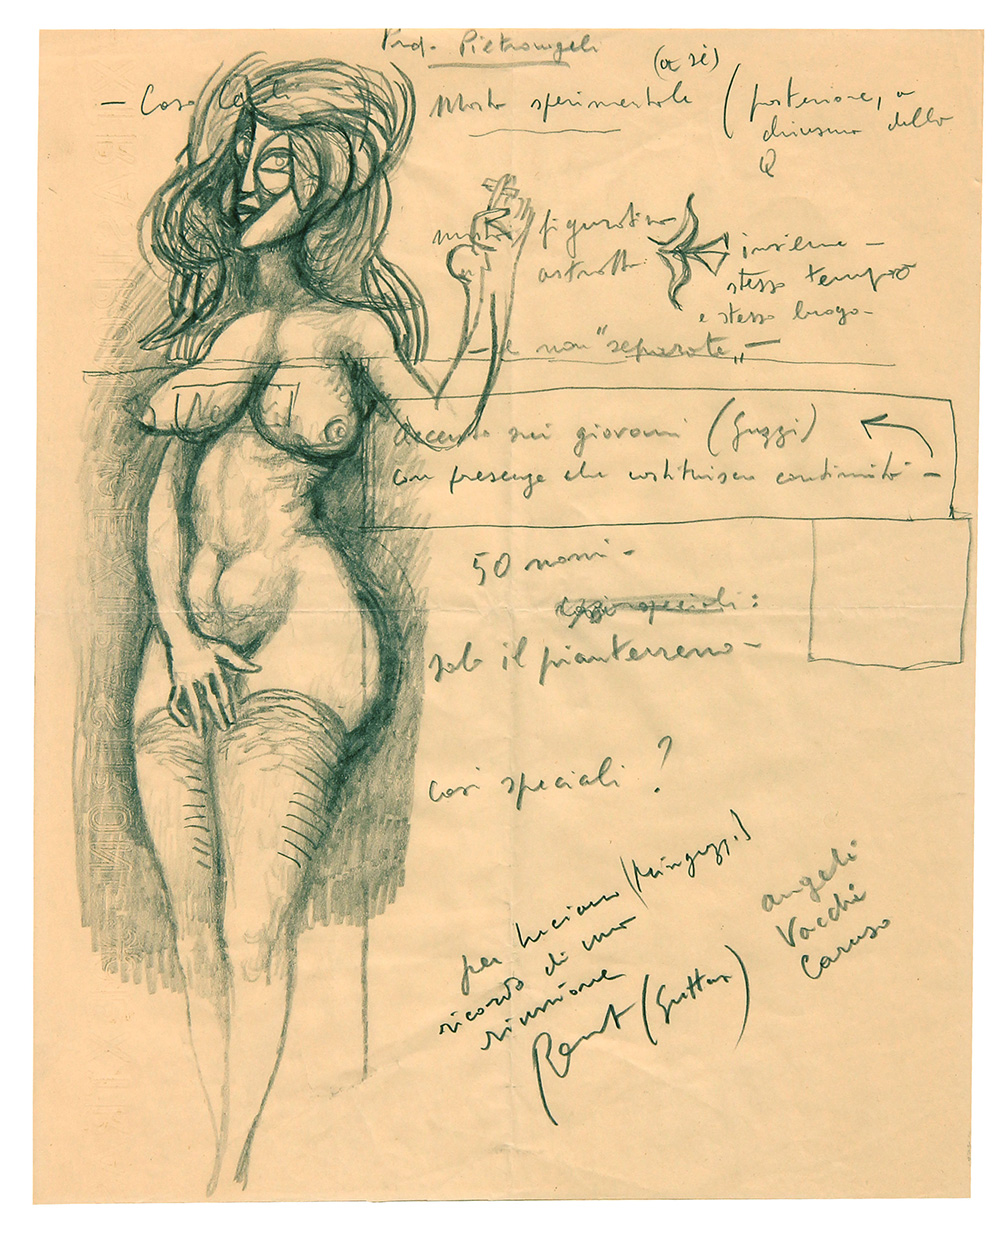 Prof. Pietrangeli
(e sì)
— Casa
Mostra sperimentale
(posteriore, a
chiusura della
Q
mostra figurativa
astratta
insieme —
stesso tempo
e stesso luogo —
— e non "separate" —
accento sui giovani (Guzzi)
con presenze che costituiscono continuità —
50 nomi —
solo il pianterreno —
casi speciali ?
per Luciano (Minguzzi)
ricordo di una
riunione
Renato (Guttuso)
Angeli
Vacchi
Caruso